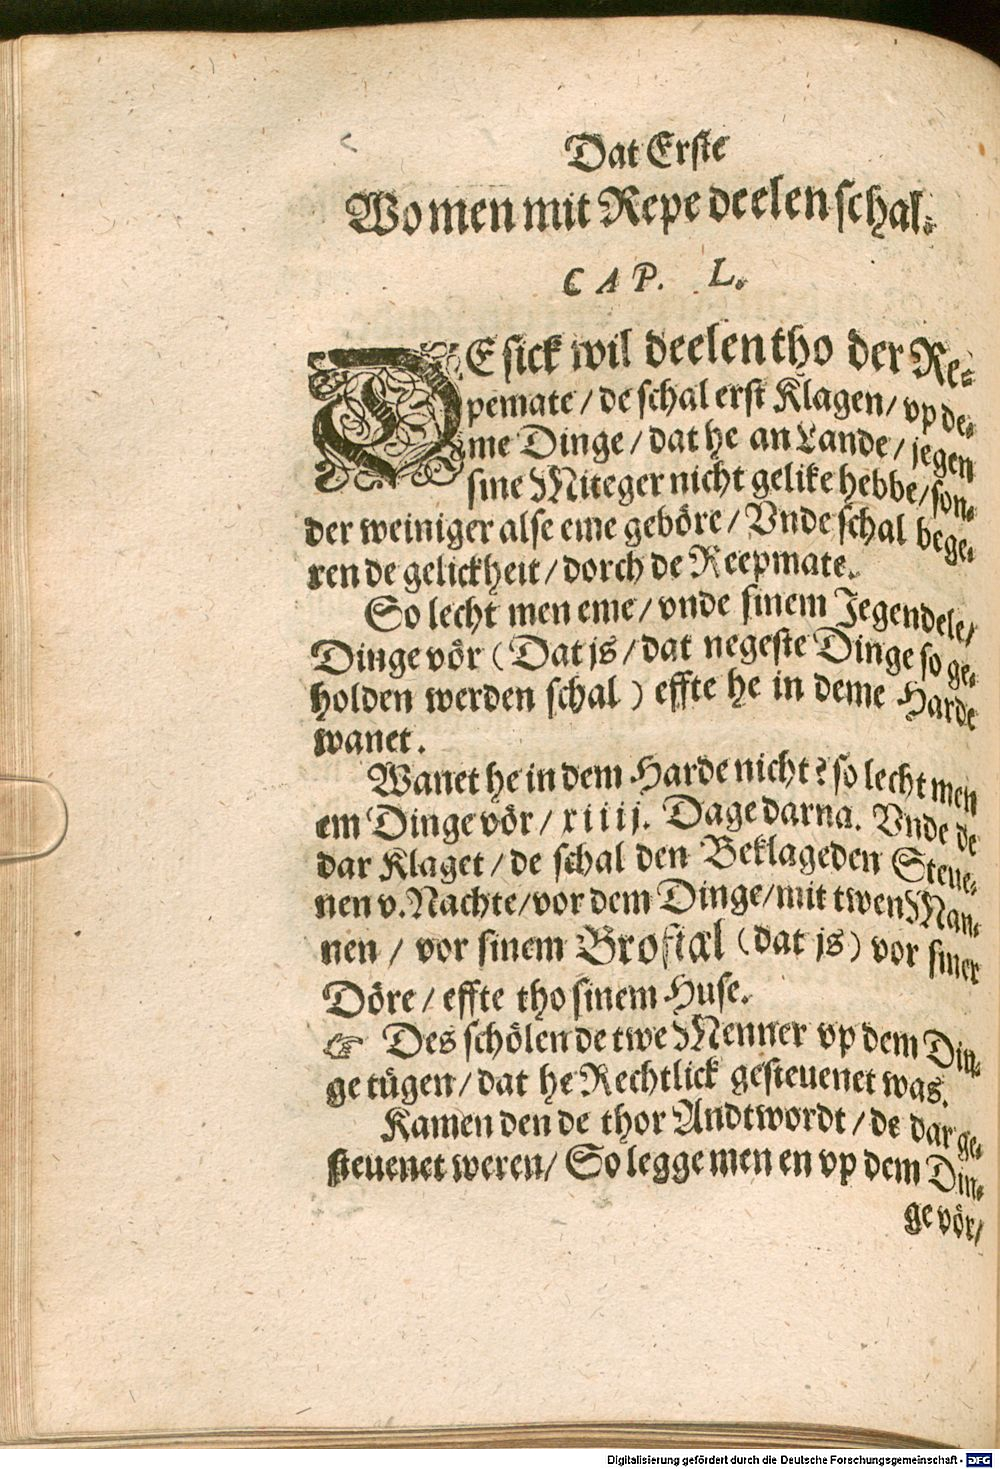 Dat Erste
Wo men mit Repe deelen schal.
CAP. L.
DE sick wil deelen tho der Re-
pemate / de schal erst Klagen / vp de-
me Dinge / dat he an Lande / jegen
sine Miteger nicht gelike hebbe / son-
der weiniger alse eme geböre / Vnde schal bege-
ren de gelickheit / dorch de Reepmate.
So lecht men eme / vnde sinem Jegendele /
Dinge vör ( Dat js / dat negeste Dinge so ge-
holden werden schal ) effte he in deme Harde
wanet.
Wanet he in dem Harde nicht? so lecht men
em Dinge vör / xiiij. Dage darna. Vnde de
dar Klaget / de schal den Beklageden Steue-
nen v. Nachte / vor dem Dinge / mit twen Man-
nen / vor sinem Brofiæl (dat js) vor siner
Döre / effte tho sinem Huse.
☞ Des schölen de twe Menner vp dem Din-
ge tügen / dat he Rechtlick gesteuenet was.
Kamen den de thor Andtwordt / de dar ge-
steuenet weren / So legge men en vp dem Din-
ge vör /
Digitalisierung gefördert durch die Deutsche Forschungsgemeinschaft - DFG